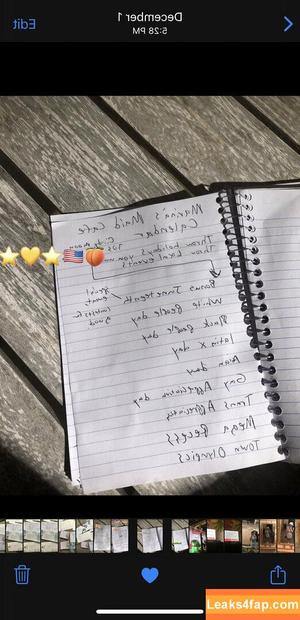 December 1
Edit
5:28 PM
Maid Cafe
Calendar
Throw holidays you
Throw Local events
Bonus Juneteenth
White People day
Black people day
Latin x day
Asian day
Gay Appreciation day
Trans
Mega Recess
Town Olympics
Leaks4fap.com